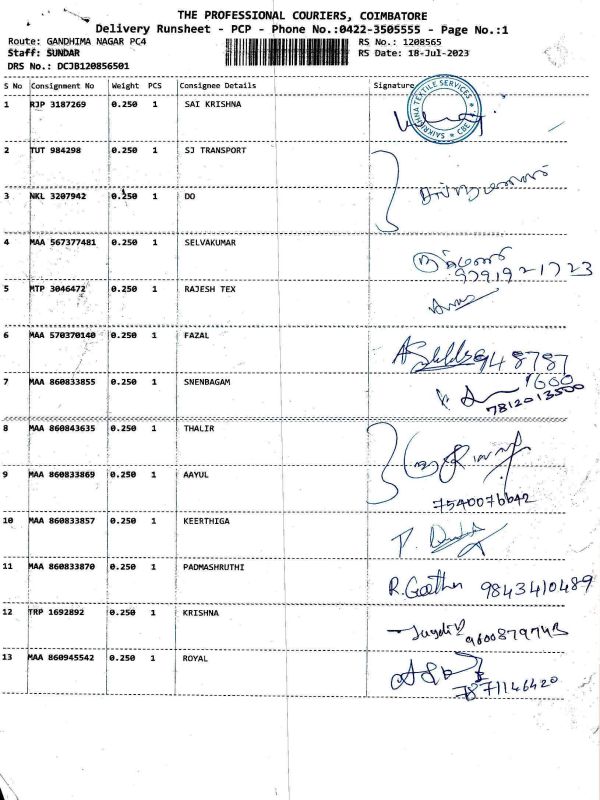 THE PROFESSIONAL COURIERS, COIMBATORE
Delivery Runsheet - PCP - Phone No.:0422-3505555 - Page No.:1
Route: GANDHIMA NAGAR PC4 RS No.: 1208565
Staff: SUNDAR RS Date: 18-Jul-2023
DRS No.: DCJB120856501
S No Consignment No Weight PCS Consignee Details Signature
SAIKRISHNA TEXTILE SERVICES * CBE *
1 RJP 3187269 0.250 1 SAI KRISHNA
2 TUT 984298 0.250 1 SJ TRANSPORT
3 NKL 3207942 0.250 1 DO
4 MAA 567377481 0.250 1 SELVAKUMAR
9791921723
5 MTP 3046472 0.250 1 RAJESH TEX
6 MAA 570370140 0.250 1 FAZAL
948787
1600
7 MAA 860833855 0.250 1 SNENBAGAM
7812013500
8 MAA 860843635 0.250 1 THALIR
9 MAA 860833869 0.250 1 AAYUL
7540076642
10 MAA 860833857 0.250 1 KEERTHIGA
11 MAA 860833870 0.250 1 PADMASHRUTHI
R. Geetha 9843410489
12 TRP 1692892 0.250 1 KRISHNA
13 MAA 860945542 0.250 1 ROYAL
7871146420